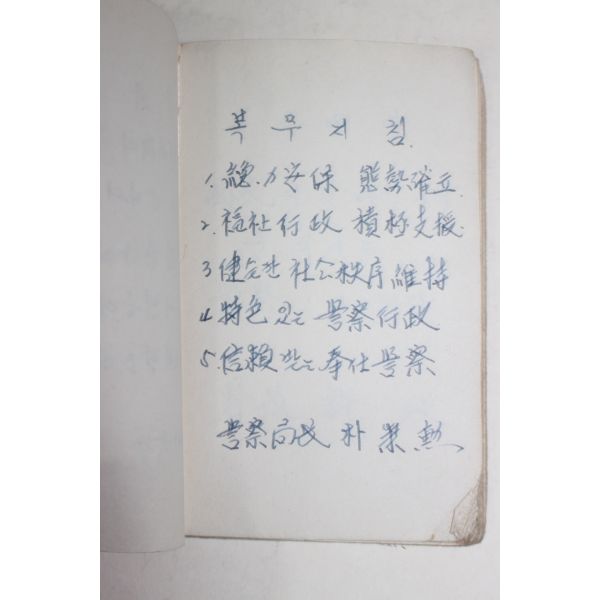 복무지침.
1. 總力安保 態勢確立
2. 福祉行政 積極支援
3 健全한 社会秩序維持
4 特色 있는 警察行政
5. 信賴받는 奉仕警察
警察局長 朴